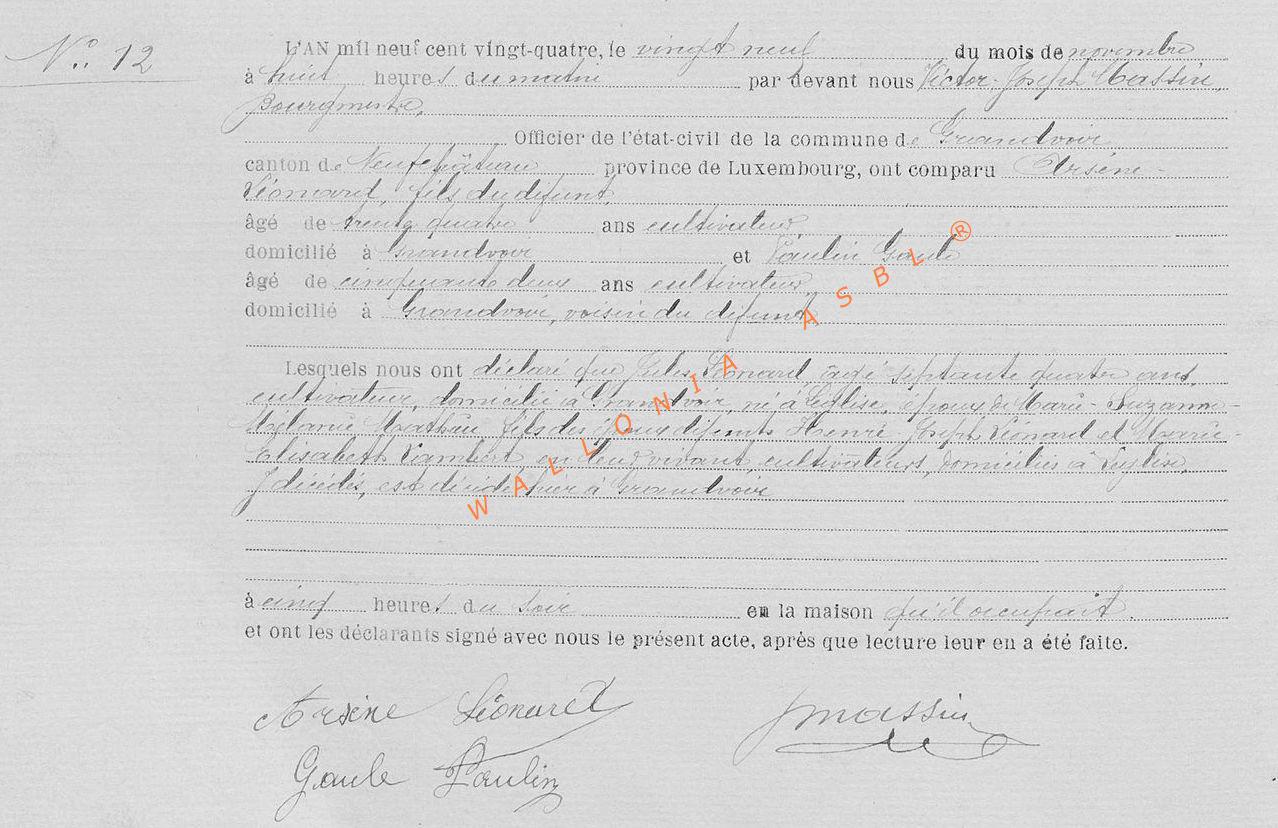 N°: 12
L'AN mil neuf cent vingt-quatre, le vingt neuf du mois de novembre
à huit heures du matin par devant nous Victor-Joseph Massin
Bourgmestre,
Officier de l'état-civil de la commune de Grandvoir
canton de Neufchâteau province de Luxembourg, ont comparu Arsène-
Léonard, fils du défunt,
âgé de trente quatre ans cultivateur,
domicilié à Grandvoir et Paulin Gaule
âgé de cinquante deux ans cultivateur,
domicilié à Grandvoir, voisin du défunt
Lesquels nous ont déclaré que Jules Léonard, âgé septante quatre ans,
cultivateur, domicilié à Grandvoir, né à Léglise, époux de Marie-Suzanne-
Mélanie Mathieu, fils des époux défunts Henri Joseph Léonard et Marie-
Elisabeth Lambert en leur vivant, cultivateurs, domiciliés à Léglise,
y décédés, est décédé hier à Grandvoir
à cinq heures du soir en la maison qu'il occupait.
et ont les déclarants signé avec nous le présent acte, après que lecture leur en a été faite.
Arsène Léonard
Massin
Gaule Paulin
WALLONIA ASBL ®